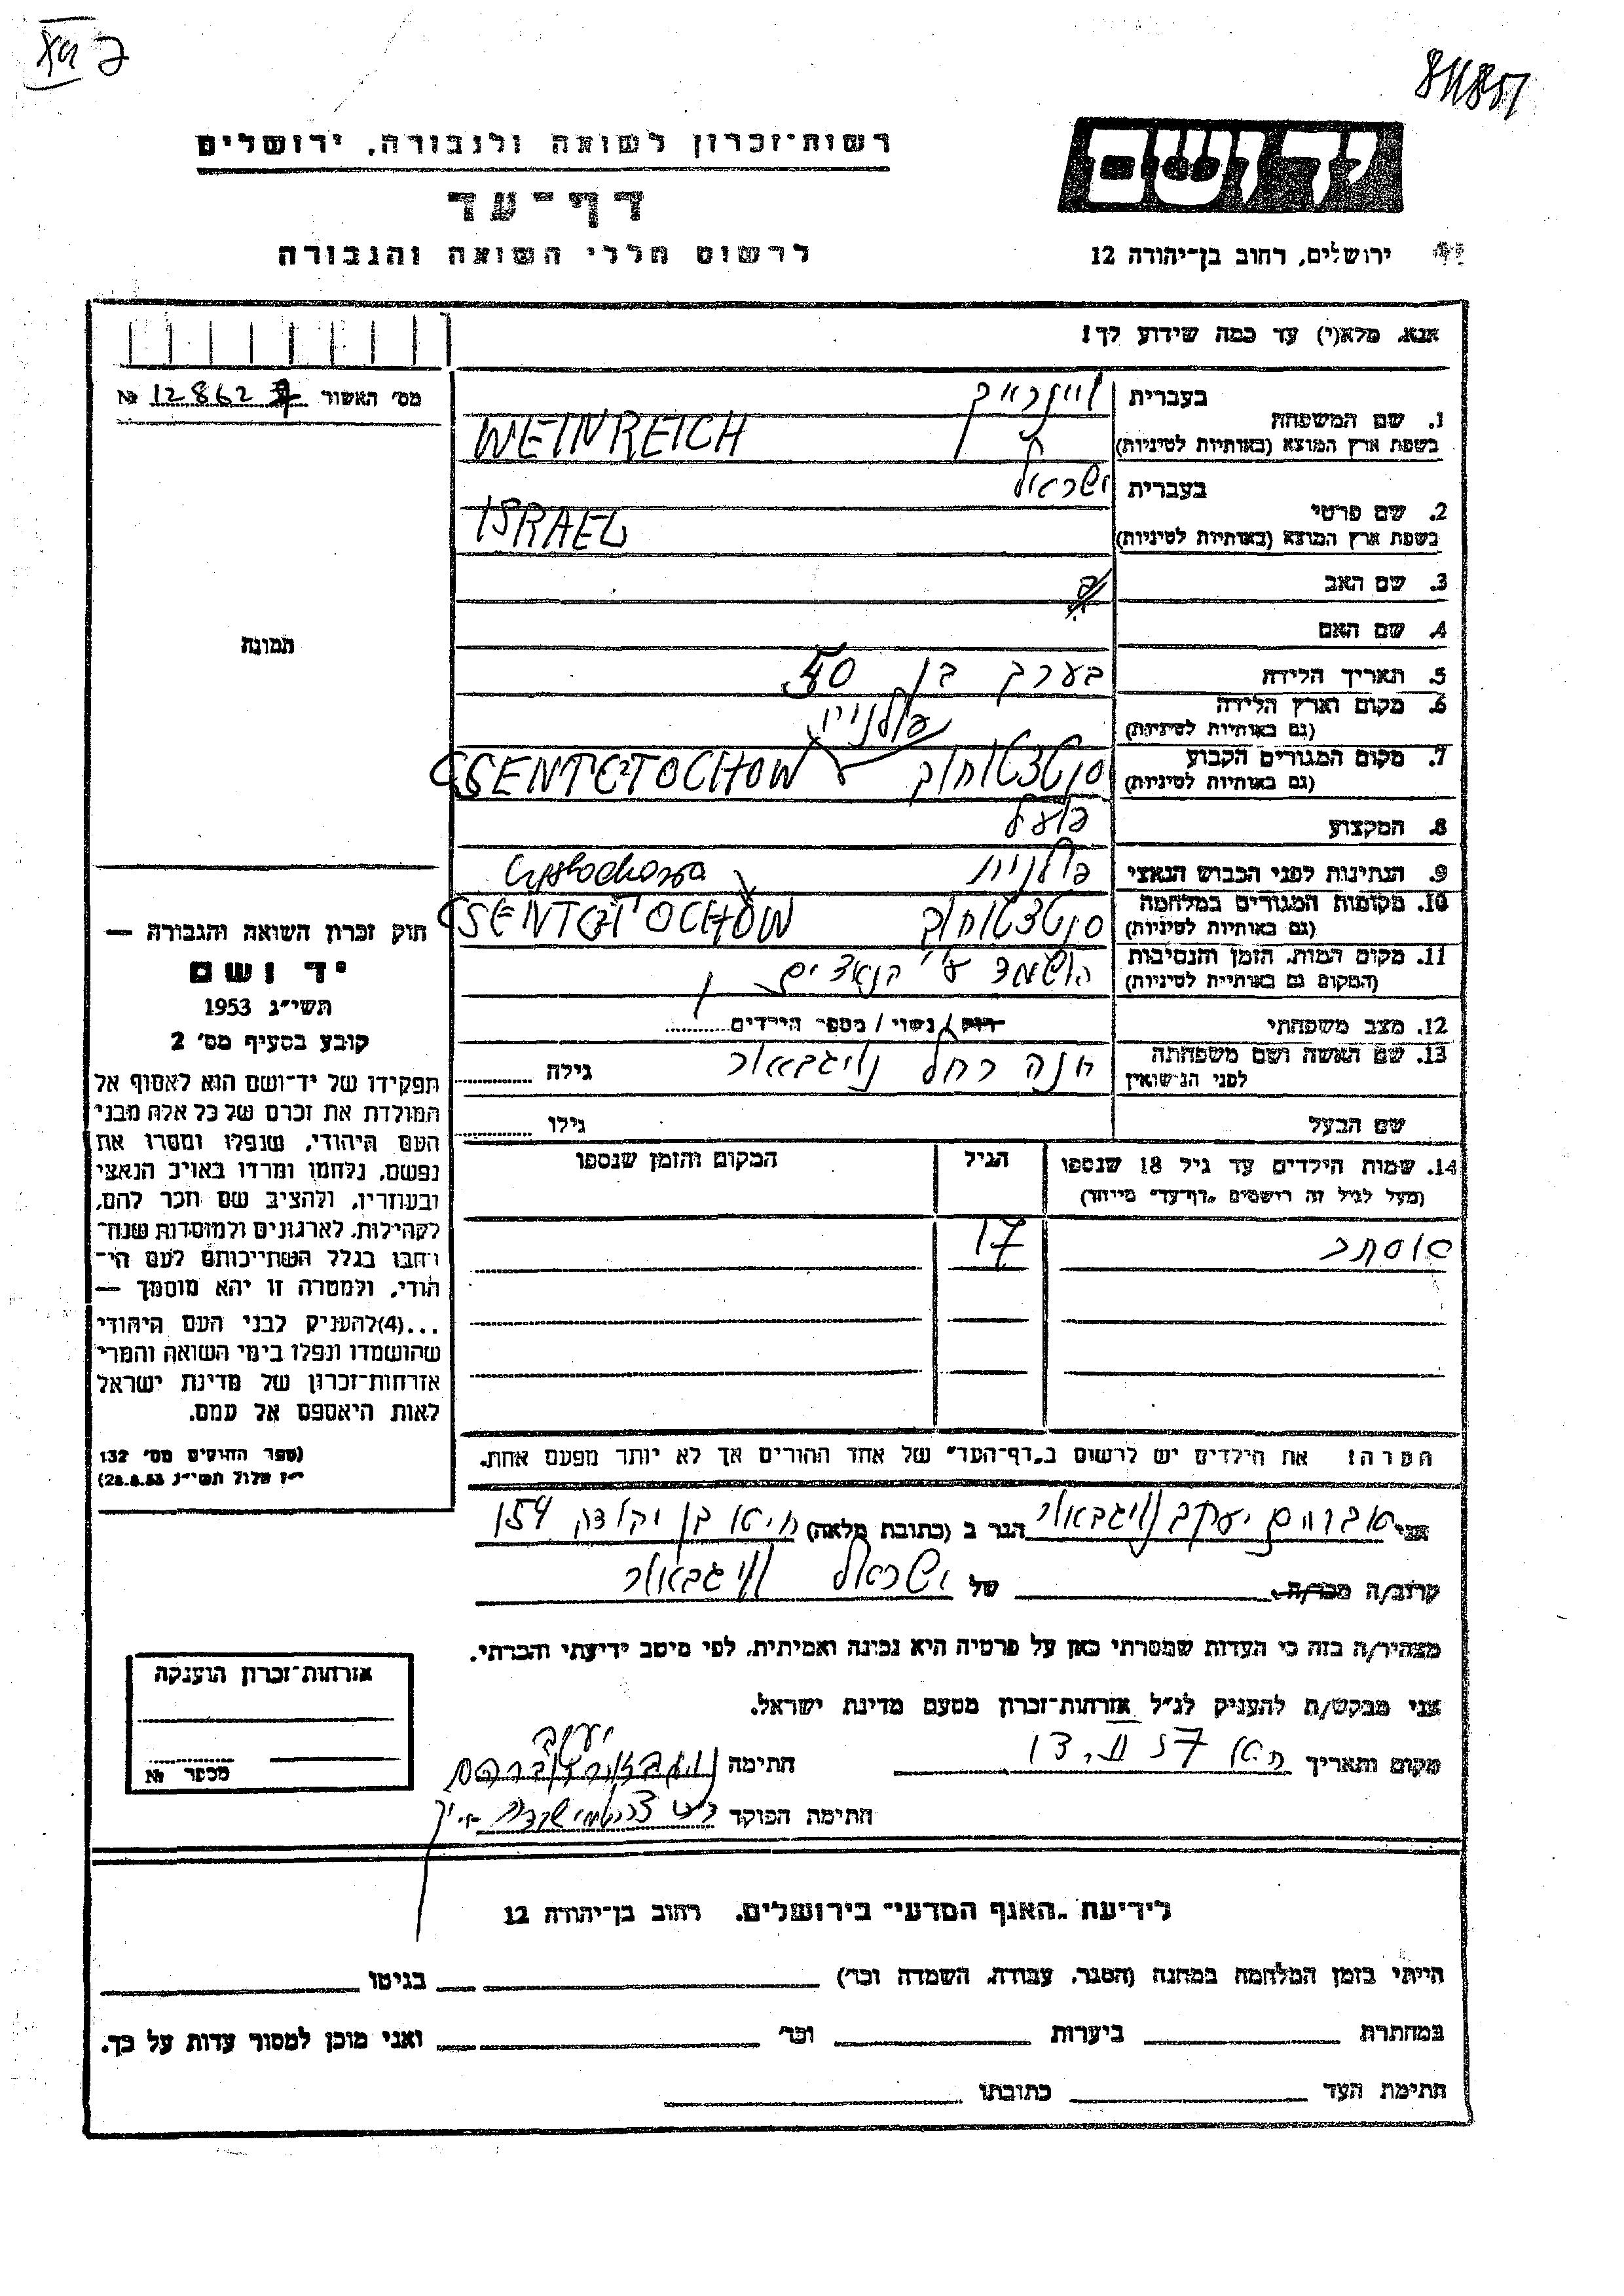 811851
רשות־זכרון לשואה ולגבורה, ירושלים
יד ושם
דף־עד
לרשום חללי השואה והגבורה
ירושלים, רחוב בן־יהודה 12
אנא, מלא(י) עד כמה שידוע לך!
מס׳ האשור № 128627
בעברית
ויינרייך
1. שם המשפחה
בשפת ארץ המוצא (באותיות לטיניות)
WEINREICH
בעברית
ישראל
2. שם פרטי
בשפת ארץ המוצא (באותיות לטיניות)
ISRAEL
3. שם האב
4. שם האם
5. תאריך הלידה
בערך בן 50
6. מקום וארץ הלידה
(גם באותיות לטיניות)
פולניי
7. מקום המגורים הקבוע
(גם באותיות לטיניות)
CSENTCTOCHOW
8. המקצוע
פועל
9. הנתינות לפני הכבוש הנאצי
פולנית
10. מקומות המגורים במלחמה
(גם באותיות לטיניות)
11. מקום המות, הזמן והנסיבות
(המקום גם באותיות לטיניות)
הושמד ע״י הנאצים
12. מצב משפחתי
רווק / נשוי / מספר הילדים
13. שם האשה ושם משפחתה
לפני הנישואין
חנה רחל ווייגבאור
גילה
שם הבעל
גילו
14. שמות הילדים עד גיל 18 שנספו
(מעל לגיל זה רושמים „דף־עד״ מיוחד)
הגיל
המקום והזמן שנספו
אסתר 17
תמונה
חוק זכרון השואה והגבורה —
יד ושם
תשי״ג 1953
קובע בסעיף מס׳ 2
תפקידו של יד־ושם הוא לאסוף אל
המולדת את זכרם של כל אלה מבני
העם היהודי, שנפלו ומסרו את
נפשם, נלחמו ומרדו באויב הנאצי
ובעוזריו, ולהציב שם וזכר להם,
לקהילות, לארגונים ולמוסדות שנח־
רבו בגלל השתייכותם לעם הי־
הודי, ולמטרה זו יהא מוסמך —
...(4)להעניק לבני העם היהודי
שהושמדו ונפלו בימי השואה והמרי
אזרחות־זכרון של מדינת ישראל
לאות היאספם אל עמם.
(ספר החוקים מס׳ 132
י״ז אלול תשי״ג 28.8.53)
הערה! את הילדים יש לרשום ב„דף־העד״ של אחד ההורים אך לא יותר מפעם אחת.
אני אברהם יעקב ווייגבאור הגר ב (כתובת מלאה) חיפא בן יהודה 154
קרוב/ה מכר/ה של ישראל ווייגבאור
מצהיר/ה בזה כי העדות שמסרתי כאן על פרטיה היא נכונה ואמיתית, לפי מיטב ידיעתי והכרתי.
אני מבקש/ת להעניק לנ״ל אזרחות־זכרון מטעם מדינת ישראל.
מקום ותאריך
חתימה
חתימת הפוקד
אזרחות־זכרון הוענקה
מספר №
לידיעת „האגף המדעי״ בירושלים, רחוב בן־יהודה 12
הייתי בזמן המלחמה במחנה (הסגר, עבודה, השמדה וכו׳) בגיטו
במחתרת ביערות וכו׳ ואני מוכן למסור עדות על כך.
חתימת העד כתובתו